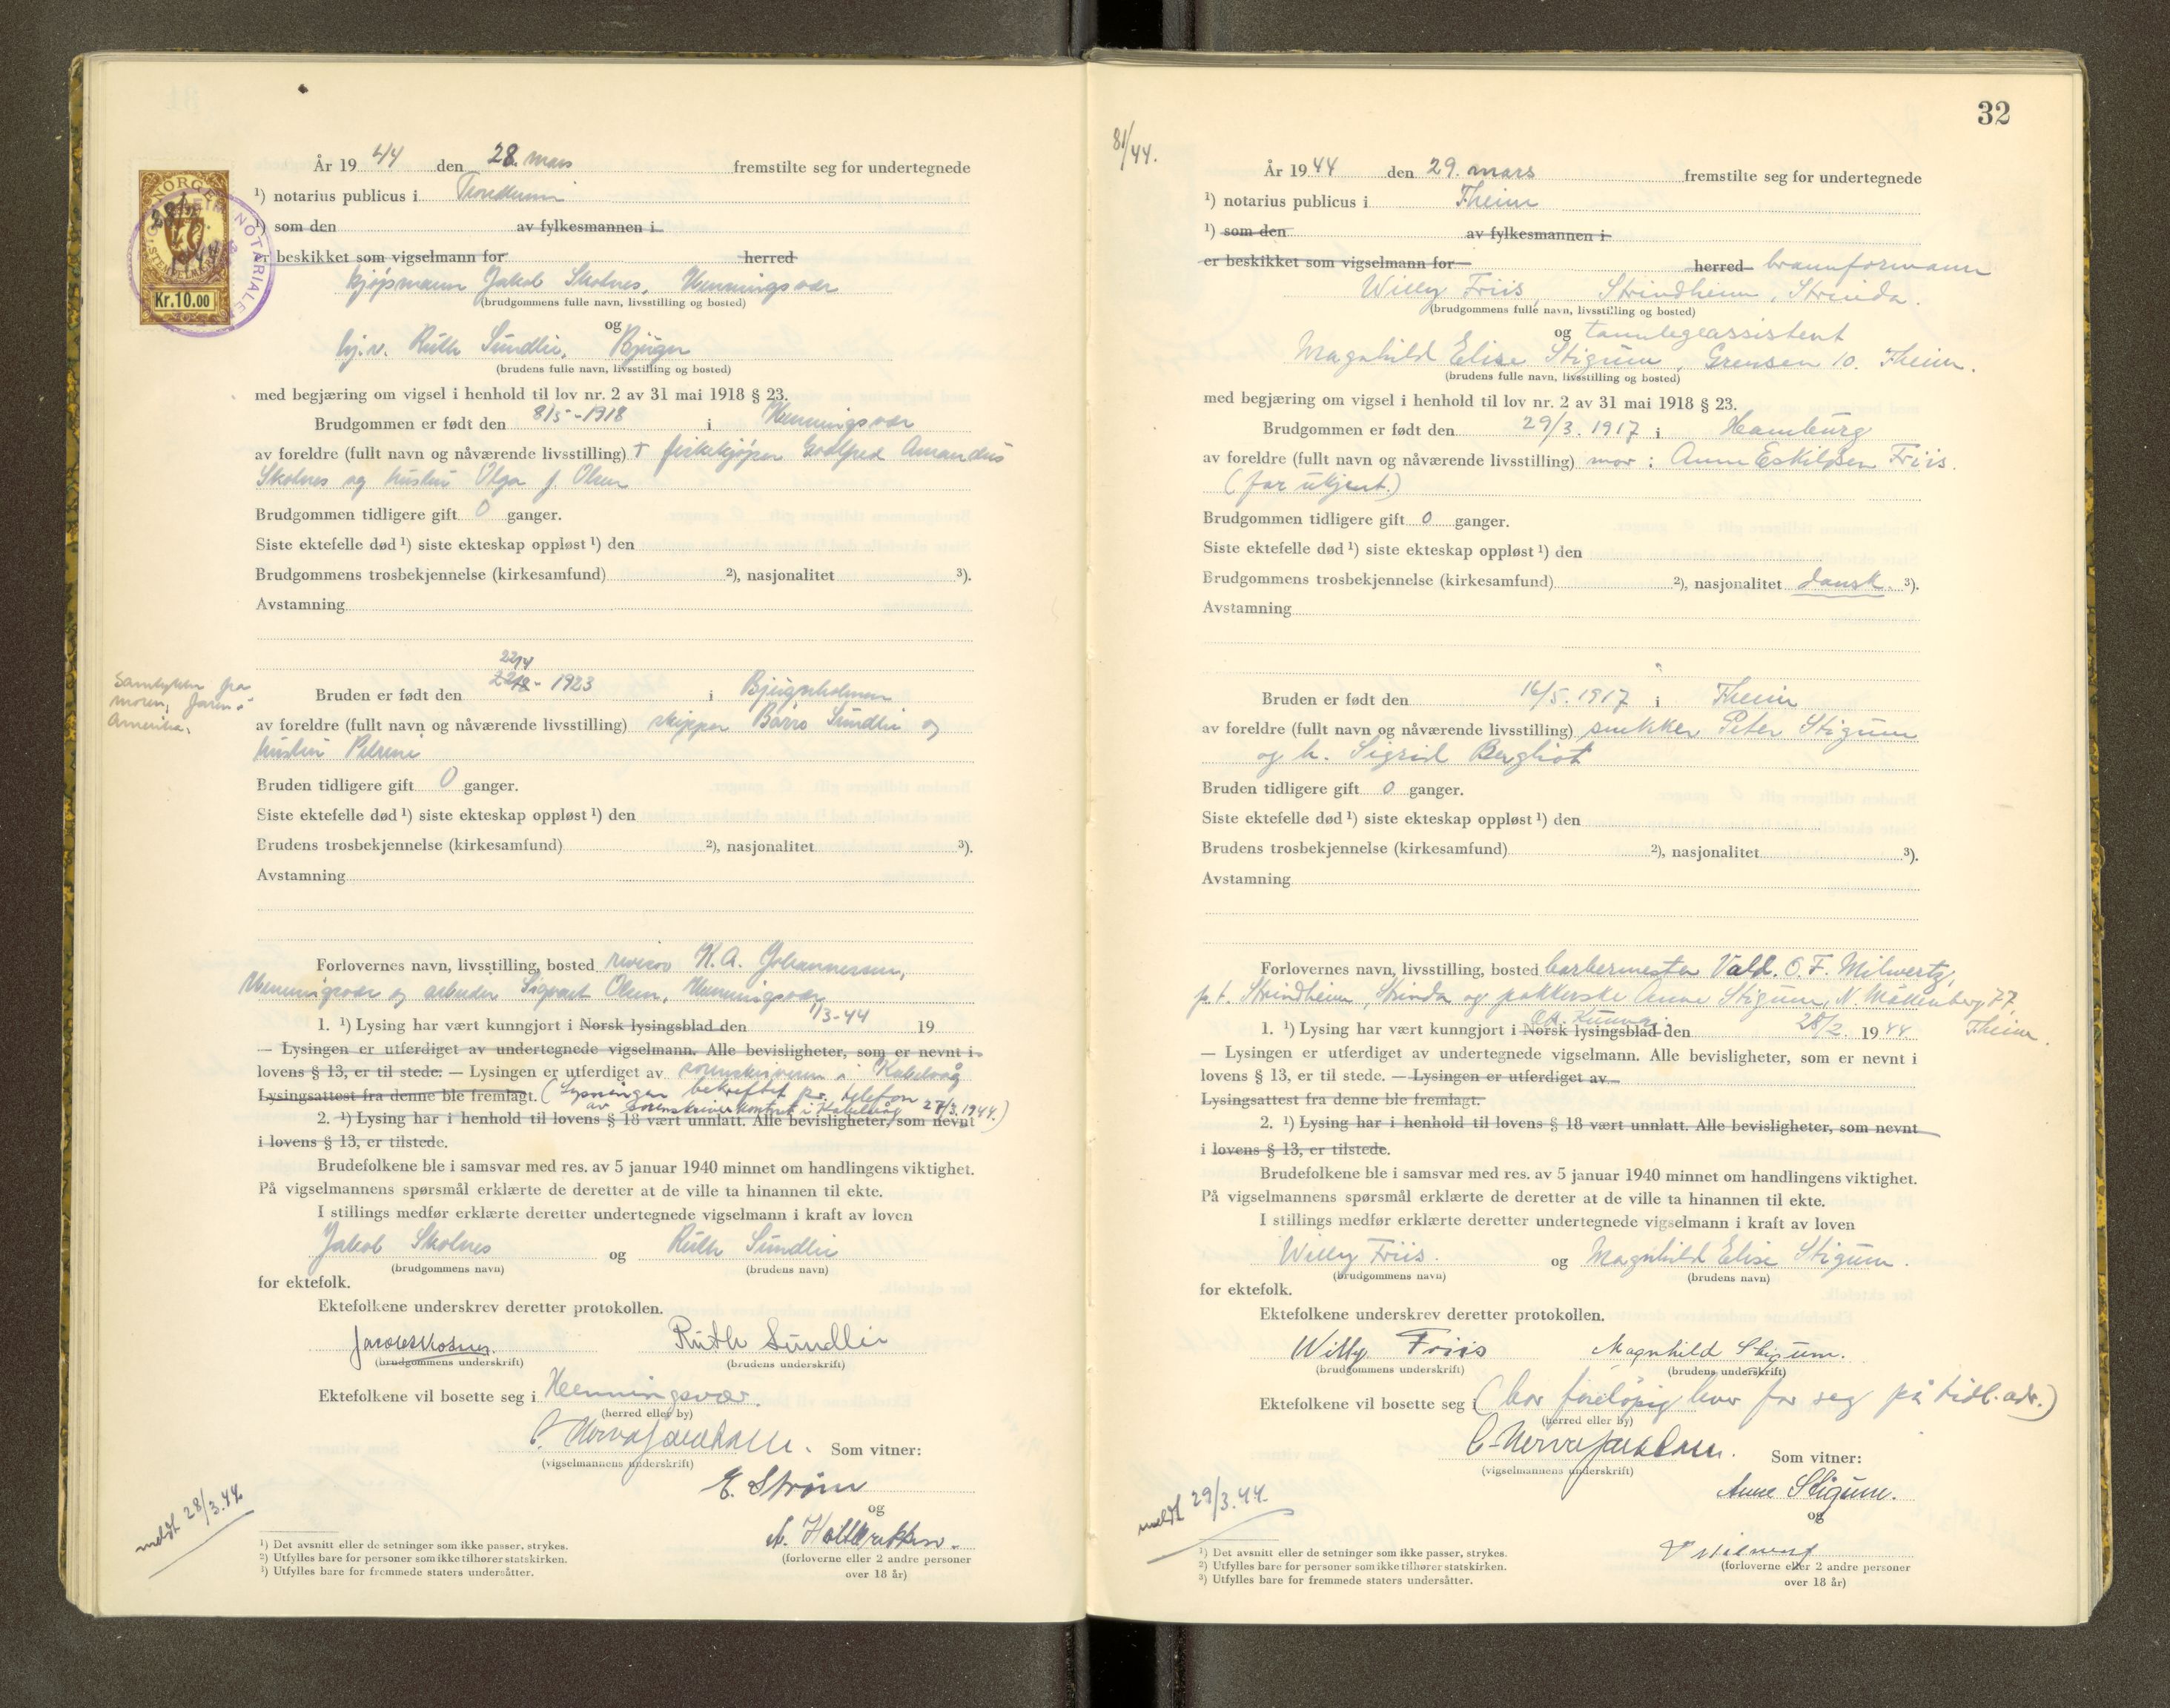 År 19 44 den 28. mars fremstilte seg for undertegnede
¹) notarius publicus i Trondheim
¹) som den av fylkesmannen i
er beskikket som vigselmann for herred
kjøpmann Jakob Skolnes, Henningsvær
(brudgommens fulle navn, livsstilling og bosted)
og
hj.v. Ruth Sundlie, Bjugn
(brudens fulle navn, livsstilling og bosted)
med begjæring om vigsel i henhold til lov nr. 2 av 31 mai 1918 § 23.
Brudgommen er født den 8/5-1918 i Henningsvær
av foreldre (fullt navn og nåværende livsstilling) † fiskekjøper Godtfred Amandus
Skolnes og hustru Olga f. Olsen
Brudgommen tidligere gift 0 ganger.
Siste ektefelle død ¹) siste ekteskap oppløst ¹) den
Brudgommens trosbekjennelse (kirkesamfund) ²), nasjonalitet ³).
Avstamning
22/4
Bruden er født den 1923 i Bjugnholmen
av foreldre (fullt navn og nåværende livsstilling) skipper Barro Sundlie og
hustru Petrine
Bruden tidligere gift 0 ganger.
Siste ektefelle død ¹) siste ekteskap oppløst ¹) den
Brudens trosbekjennelse (kirkesamfund) ²), nasjonalitet ³).
Avstamning
Forlovernes navn, livsstilling, bosted revisor K.A. Johannessen,
Henningsvær og arbeider Sigvart Olsen, Henningsvær
1. ¹) Lysing har vært kunngjort i Norsk lysingsblad den 1/3-44 19
— Lysingen er utferdiget av undertegnede vigselmann. Alle bevisligheter, som er nevnt i
lovens § 13, er til stede. — Lysingen er utferdiget av sorenskriveren i Kabelvåg
Lysingsattest fra denne ble fremlagt. (Lysningen bekreftet pr. telefon
av sorenskriverkontoret i Kabelvåg 27/3.1944.)
2. ¹) Lysing har i henhold til lovens § 18 vært unnlatt. Alle bevisligheter, som nevnt
i lovens § 13, er tilstede.
Brudefolkene ble i samsvar med res. av 5 januar 1940 minnet om handlingens viktighet.
På vigselmannens spørsmål erklærte de deretter at de ville ta hinannen til ekte.
I stillings medfør erklærte deretter undertegnede vigselmann i kraft av loven
Jakob Skolnes og Ruth Sundlie
(brudgommens navn) (brudens navn)
for ektefolk.
Ektefolkene underskrev deretter protokollen.
Jacob Skolnes. Ruth Sundlie
(brudgommens underskrift) (brudens underskrift)
Ektefolkene vil bosette seg i Henningsvær.
(herred eller by)
Som vitner:
(vigselmannens underskrift)
E. Strøm
og
(forloverne eller 2 andre personer
over 18 år)
¹) Det avsnitt eller de setninger som ikke passer, strykes.
²) Utfylles bare for personer som ikke tilhører statskirken.
³) Utfylles bare for fremmede staters undersåtter.
Samtykke fra
moren, faren i
Amerika.
meldt 28/3.44
NORGE
Kr. 10.00
NOTARIALEN
32
81/44.
År 19 44 den 29. mars fremstilte seg for undertegnede
¹) notarius publicus i Theim
¹) som den av fylkesmannen i
er beskikket som vigselmann for herred brannformann
Willy Friis, Strindheim, Strinda.
(brudgommens fulle navn, livsstilling og bosted)
og tannlegeassistent
Magnhild Elise Stigum, Grensen 10. Theim.
(brudens fulle navn, livsstilling og bosted)
med begjæring om vigsel i henhold til lov nr. 2 av 31 mai 1918 § 23.
Brudgommen er født den 29/3. 1917 i Hamburg
av foreldre (fullt navn og nåværende livsstilling) mor: Anna Eskildsen Friis.
(far ukjent.)
Brudgommen tidligere gift 0 ganger.
Siste ektefelle død ¹) siste ekteskap oppløst ¹) den
Brudgommens trosbekjennelse (kirkesamfund) ²), nasjonalitet dansk. ³).
Avstamning
Bruden er født den 16/5. 1917 i Theim
av foreldre (fullt navn og nåværende livsstilling) snekker Peter Stigum
og h. Sigrid Bergliot
Bruden tidligere gift 0 ganger.
Siste ektefelle død ¹) siste ekteskap oppløst ¹) den
Brudens trosbekjennelse (kirkesamfund) ²), nasjonalitet ³).
Avstamning
Forlovernes navn, livsstilling, bosted barbermester Vald. O.F. Milwertz,
p.t. Strindheim, Strinda og pakkerske Anne Stigum, N. Møllenberg 77,
Theim.
1. ¹) Lysing har vært kunngjort i Norsk lysingsblad den 28/2. 19 44
— Lysingen er utferdiget av undertegnede vigselmann. Alle bevisligheter, som er nevnt i
lovens § 13, er til stede. — Lysingen er utferdiget av
Lysingsattest fra denne ble fremlagt.
2. ¹) Lysing har i henhold til lovens § 18 vært unnlatt. Alle bevisligheter, som nevnt
i lovens § 13, er tilstede.
Brudefolkene ble i samsvar med res. av 5 januar 1940 minnet om handlingens viktighet.
På vigselmannens spørsmål erklærte de deretter at de ville ta hinannen til ekte.
I stillings medfør erklærte deretter undertegnede vigselmann i kraft av loven
Willy Friis. og Magnhild Elise Stigum.
(brudgommens navn) (brudens navn)
for ektefolk.
Ektefolkene underskrev deretter protokollen.
Willy Friis Magnhild Stigum.
(brudgommens underskrift) (brudens underskrift)
Ektefolkene vil bosette seg i (bor foreløpig hver for seg på tidl. adr.)
(herred eller by)
Som vitner:
(vigselmannens underskrift)
Anne Stigum.
og
(forloverne eller 2 andre personer
over 18 år)
meldt 29/3.44.
¹) Det avsnitt eller de setninger som ikke passer, strykes.
²) Utfylles bare for personer som ikke tilhører statskirken.
³) Utfylles bare for fremmede staters undersåtter.